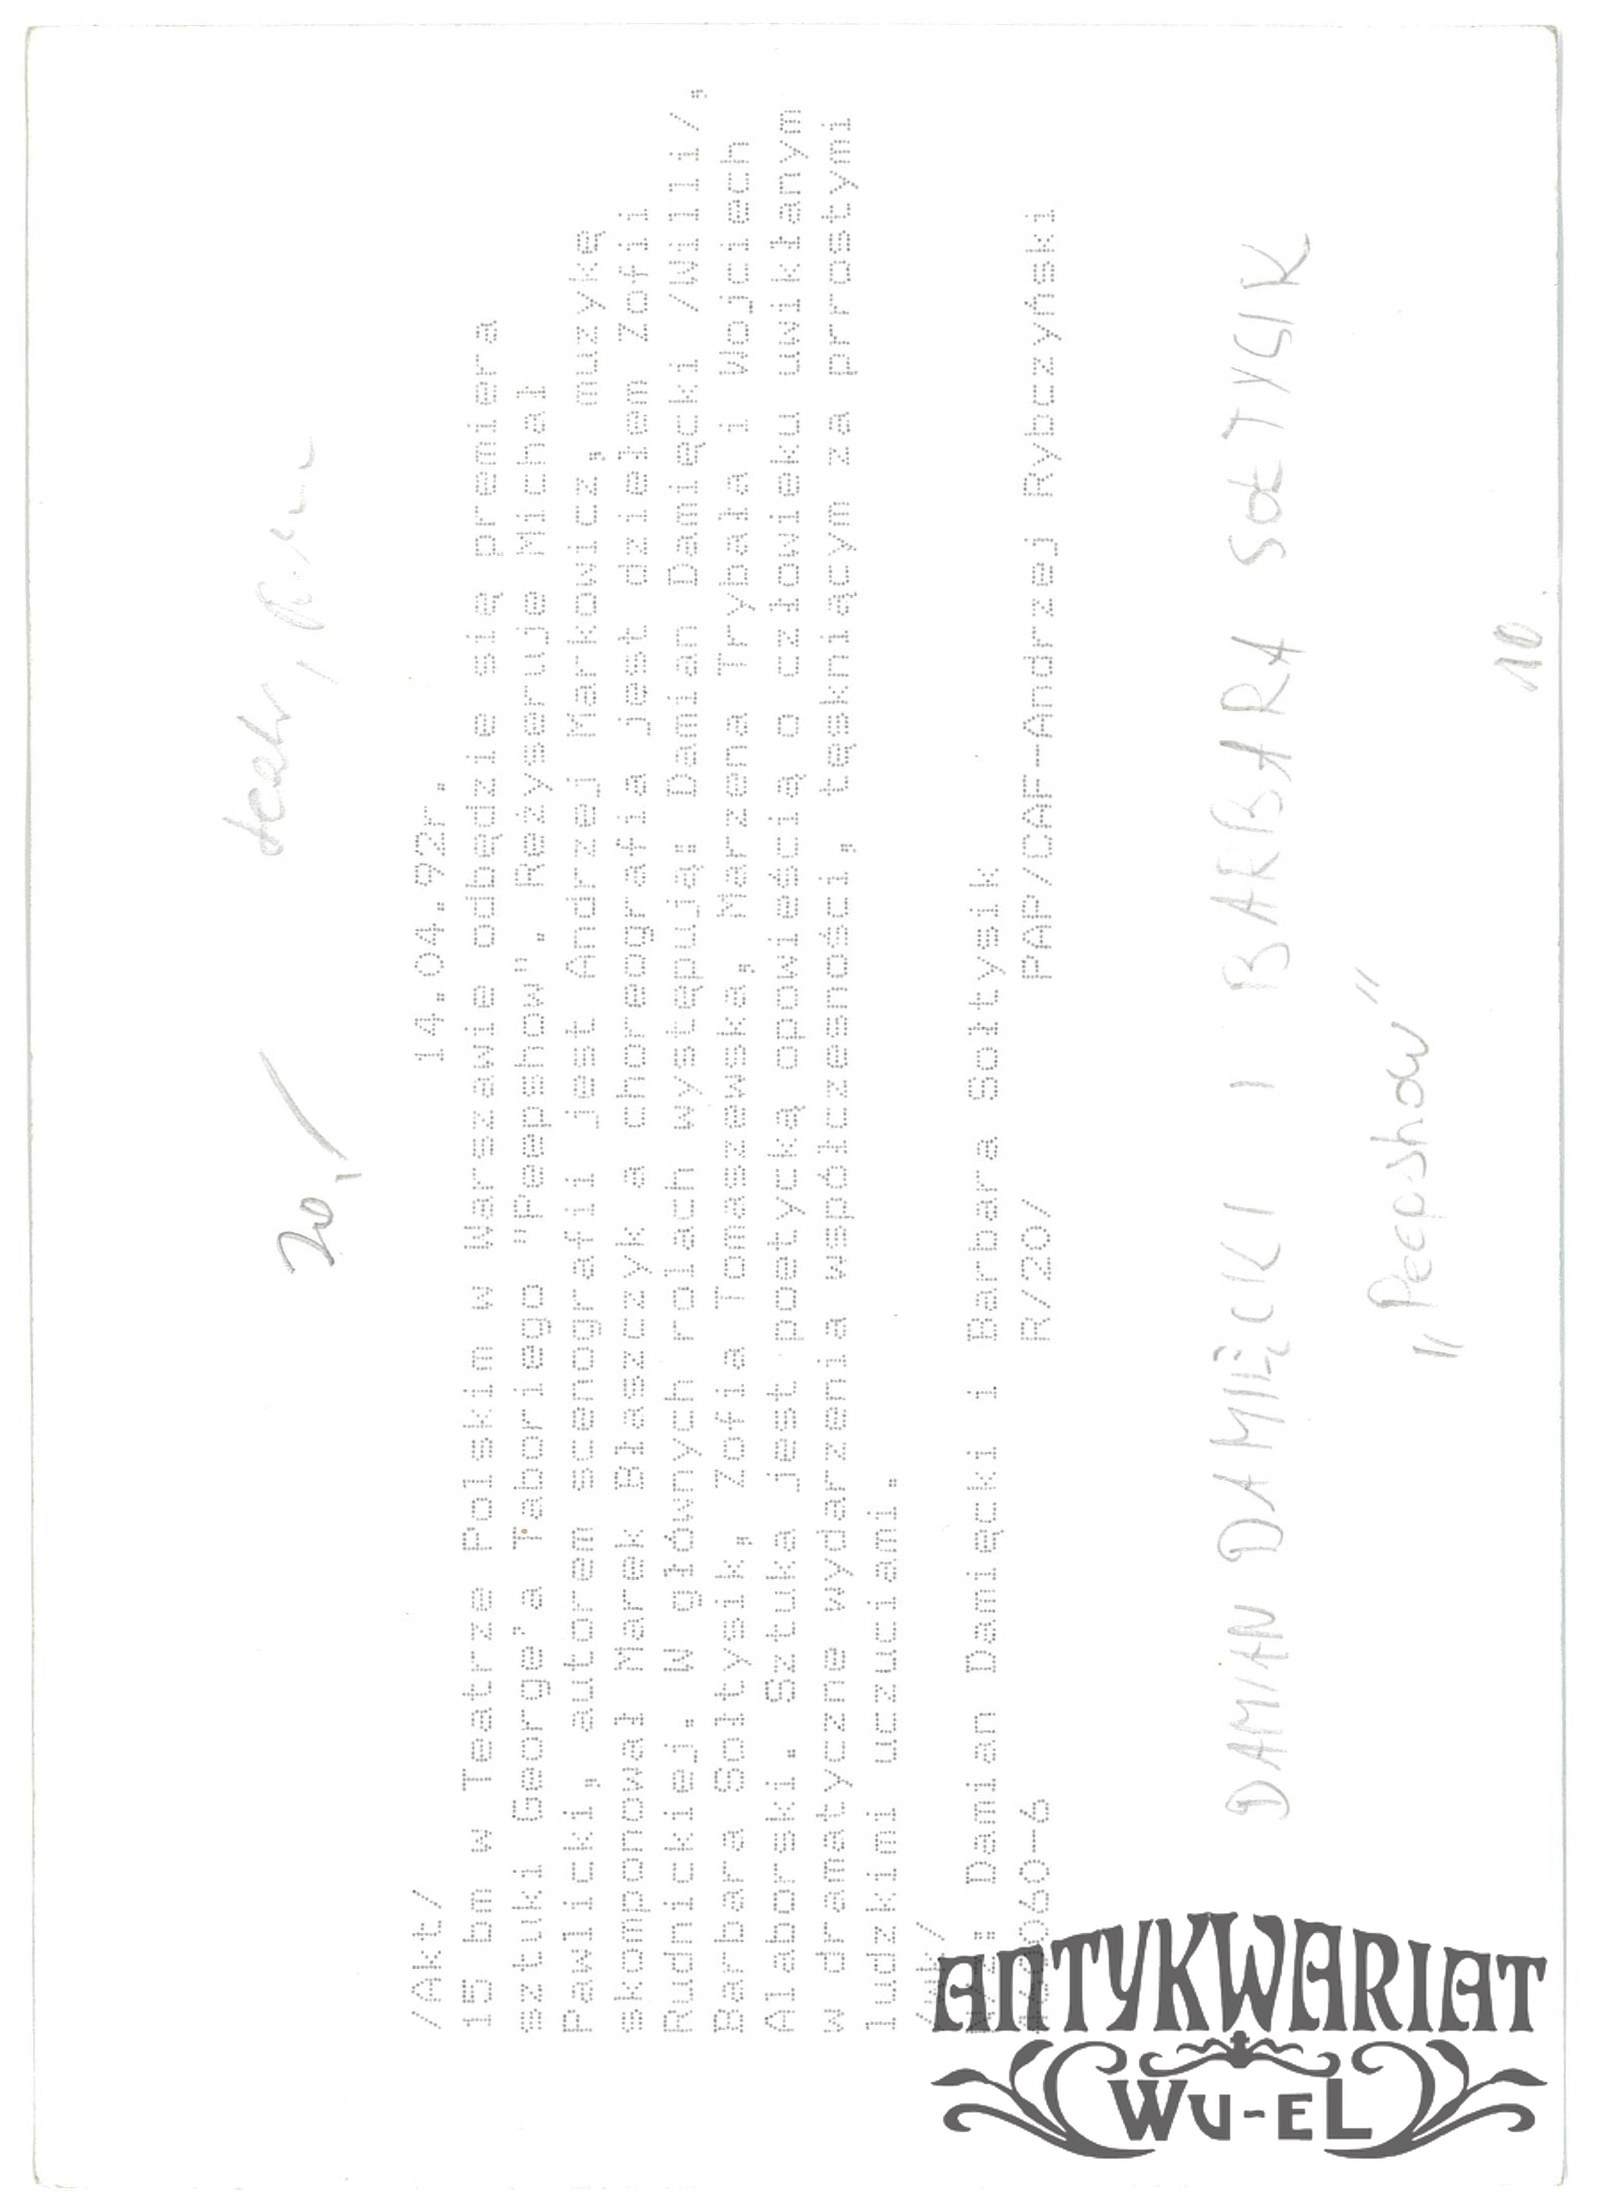 20,-
/Akt/ 14.04.92r.
15 bm w Teatrze Polskim w Warszawie odbędzie się premiera
sztuki George'a Taboriego "Peepshow". Reżyseruje Michał
Pawlicki, autorem scenografii jest Andrzej Markowicz, muzykę
skomponował Marek Błaszczyk a choreografia jest dziełem Zofii
Rudnickiej. W głównych rolach wystąpują: Damian Damięcki /Willi/,
Barbara Sołtysik, Zofia Tomaszewska, Marzena Trybała i Wojciech
Alaborski. Sztuka jest poetycką opowieścią o człowieku uwikłanym
w dramatyczne wydarzenia współczesności, tęskniącym za prostymi
ludzkimi uczuciami.
/uk/
Damian Damięcki i Barbara Sołtysik
R/20/ PAP/CAF-Andrzej Rybczyński
DAMIAN DAMIĘCKI I BARBARA SOŁTYSIK
"Peepshow"
10.
ANTYKWARIAT
WU-EL